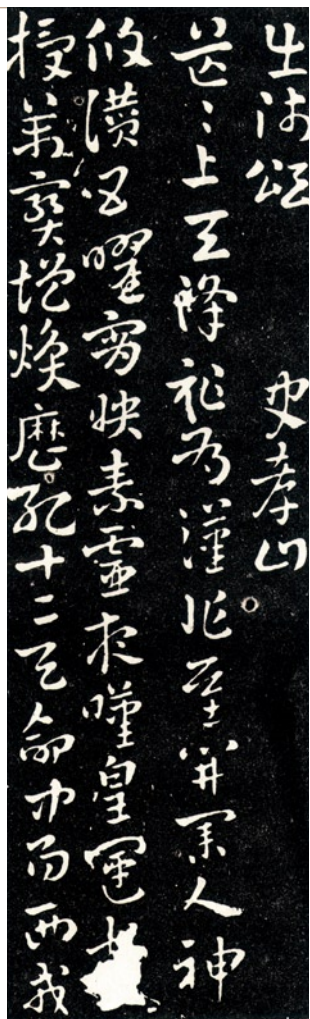 出師頌　史孝山
茫〻上天降祚為漢作基開業人神
攸讚五曜宵映素靈夜歎皇運
授萬寶增煥歷紀十二天命中易西戎